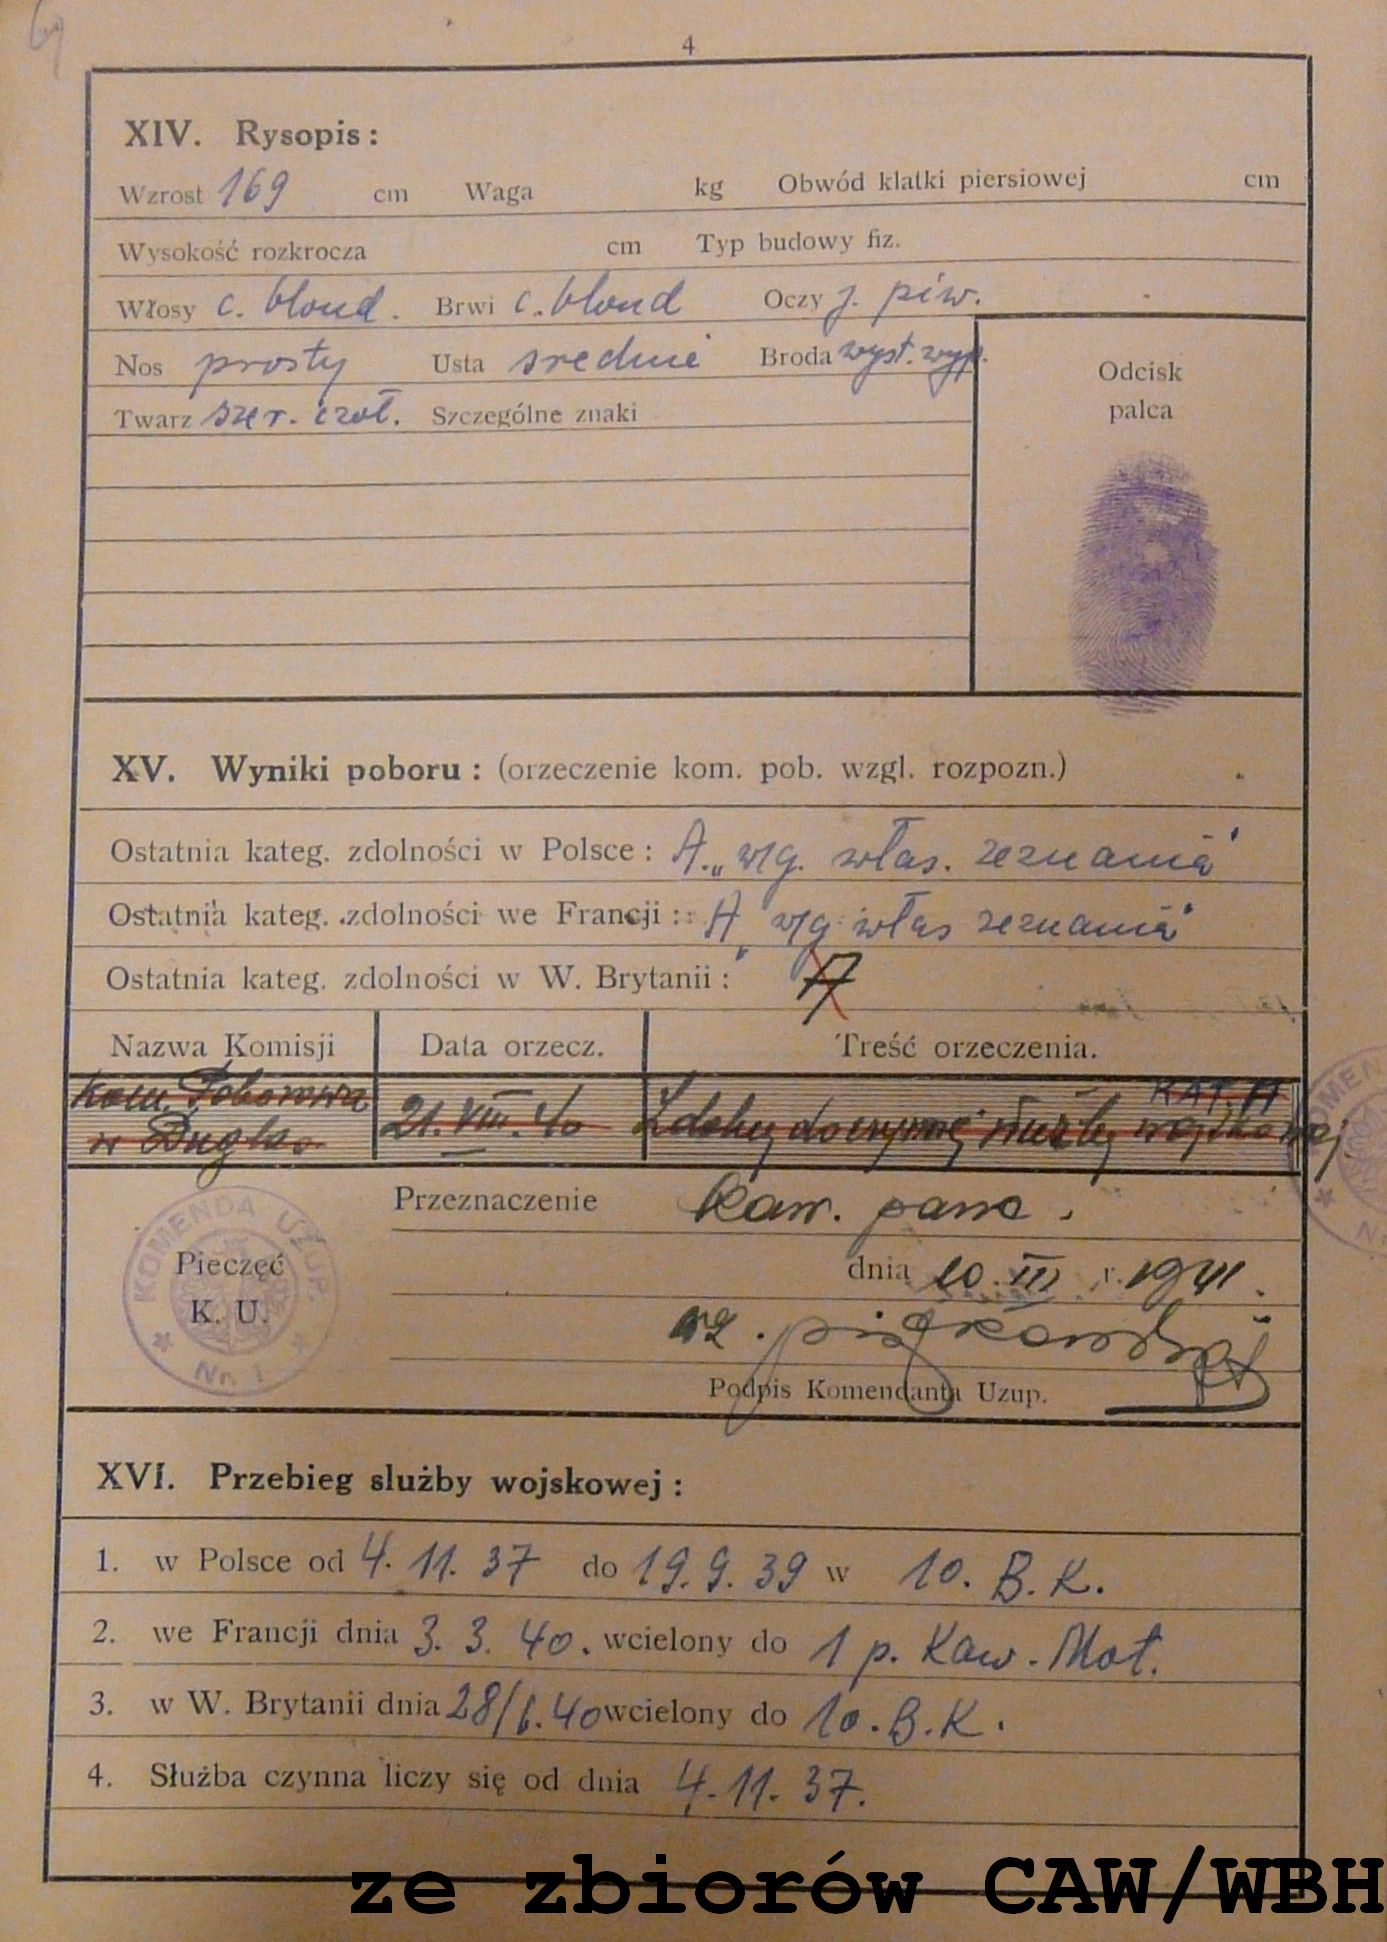 4
XIV. Rysopis:
Wzrost 169 cm Waga kg Obwód klatki piersiowej cm
Wysokość rozkrocza cm Typ budowy fiz.
Włosy c. blond. Brwi c. blond Oczy j. piw.
Nos prosty Usta srednie Broda wyst. wyp.
Twarz szer. czoł. Szczególne znaki
Odcisk
palca
XV. Wyniki poboru: (orzeczenie kom. pob. wzgl. rozpozn.)
Ostatnia kateg. zdolności w Polsce: A. „wg. włas. zeznania"
Ostatnia kateg. zdolności we Francji: A „wg włas zeznania"
Ostatnia kateg. zdolności w W. Brytanii: A
Nazwa Komisji Data orzecz. Treść orzeczenia.
KAT. A
Kom. Poborowa 21.VIII.40 Zdolny do czynnej służby wojskowej
w Duglas
Przeznaczenie kaw. panc.
Pieczęć
K. U.
KOMENDA UZUP. Nr. 1
dnia 10. III r. 1941.
wz.
Podpis Komendanta Uzup.
XVI. Przebieg służby wojskowej:
1. w Polsce od 4. 11. 37 do 19. 9. 39 w 10. B. K.
2. we Francji dnia 3. 3. 40. wcielony do 1 p. Kaw. Mot.
3. w W. Brytanii dnia 28/6.40 wcielony do 10. B. K.
4. Służba czynna liczy się od dnia 4. 11. 37.
ze zbiorów CAW/WBH